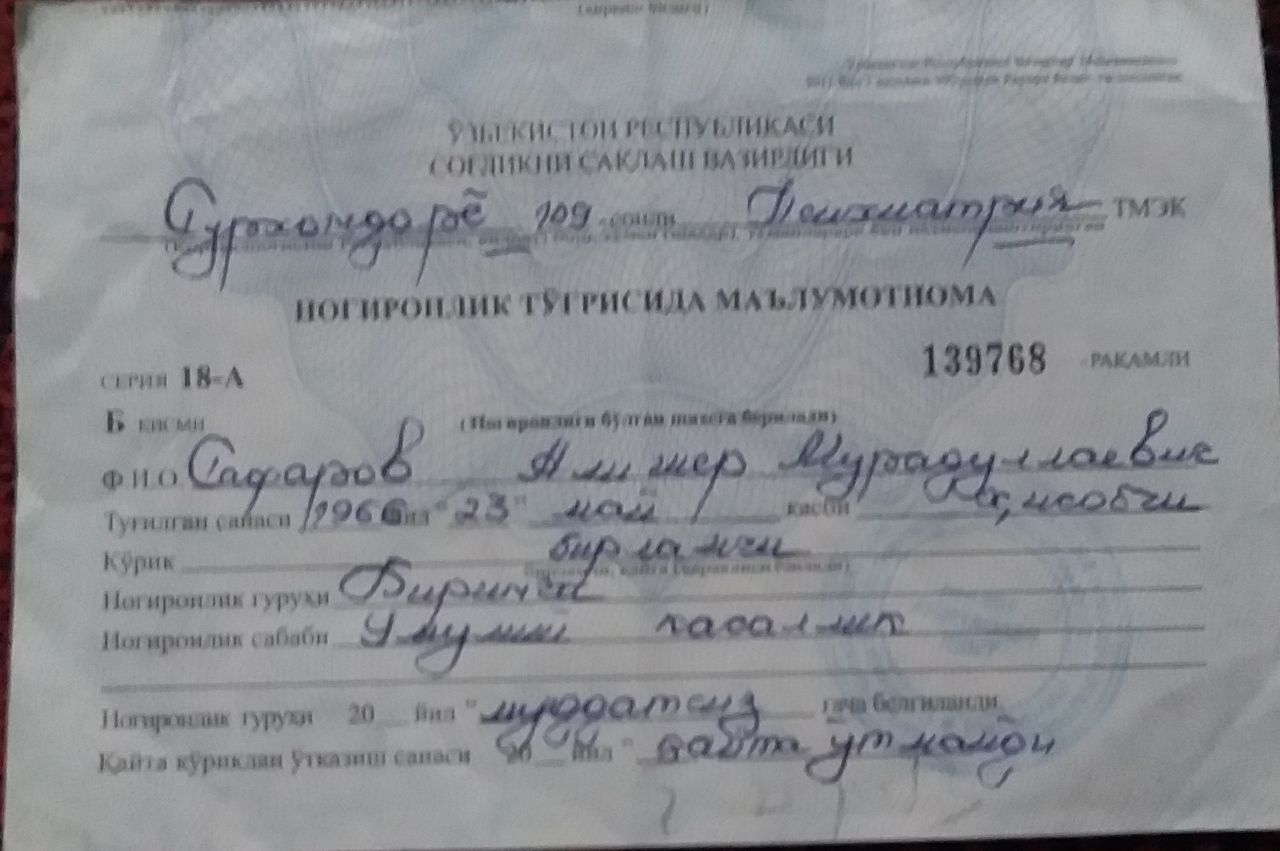 ЎЗБЕКИСТОН РЕСПУБЛИКАСИ
СОҒЛИҚНИ САҚЛАШ ВАЗИРЛИГИ
Сурхондарё 109 -сонли Психиатрия ТМЭК
НОГИРОНЛИК ТЎҒРИСИДА МАЪЛУМОТНОМА
СЕРИЯ 18-А 139768 РАҚАМЛИ
Б ҚИСМИ (Ногиронлиги бўлган шахсга берилади)
Ф И О Сафаров Алишер Мурадуллаевич
Туғилган санаси 1966 йил "23" май касби
Кўрик бирламчи
Ногиронлик гуруҳи Биринчи
Ногиронлик сабаби Умумий касаллик
Ногиронлик гуруҳи 20 йил " муддатсиз гача белгиланди
Қайта кўрикдан ўтказиш санаси 20 йил " қайта ўтмайди